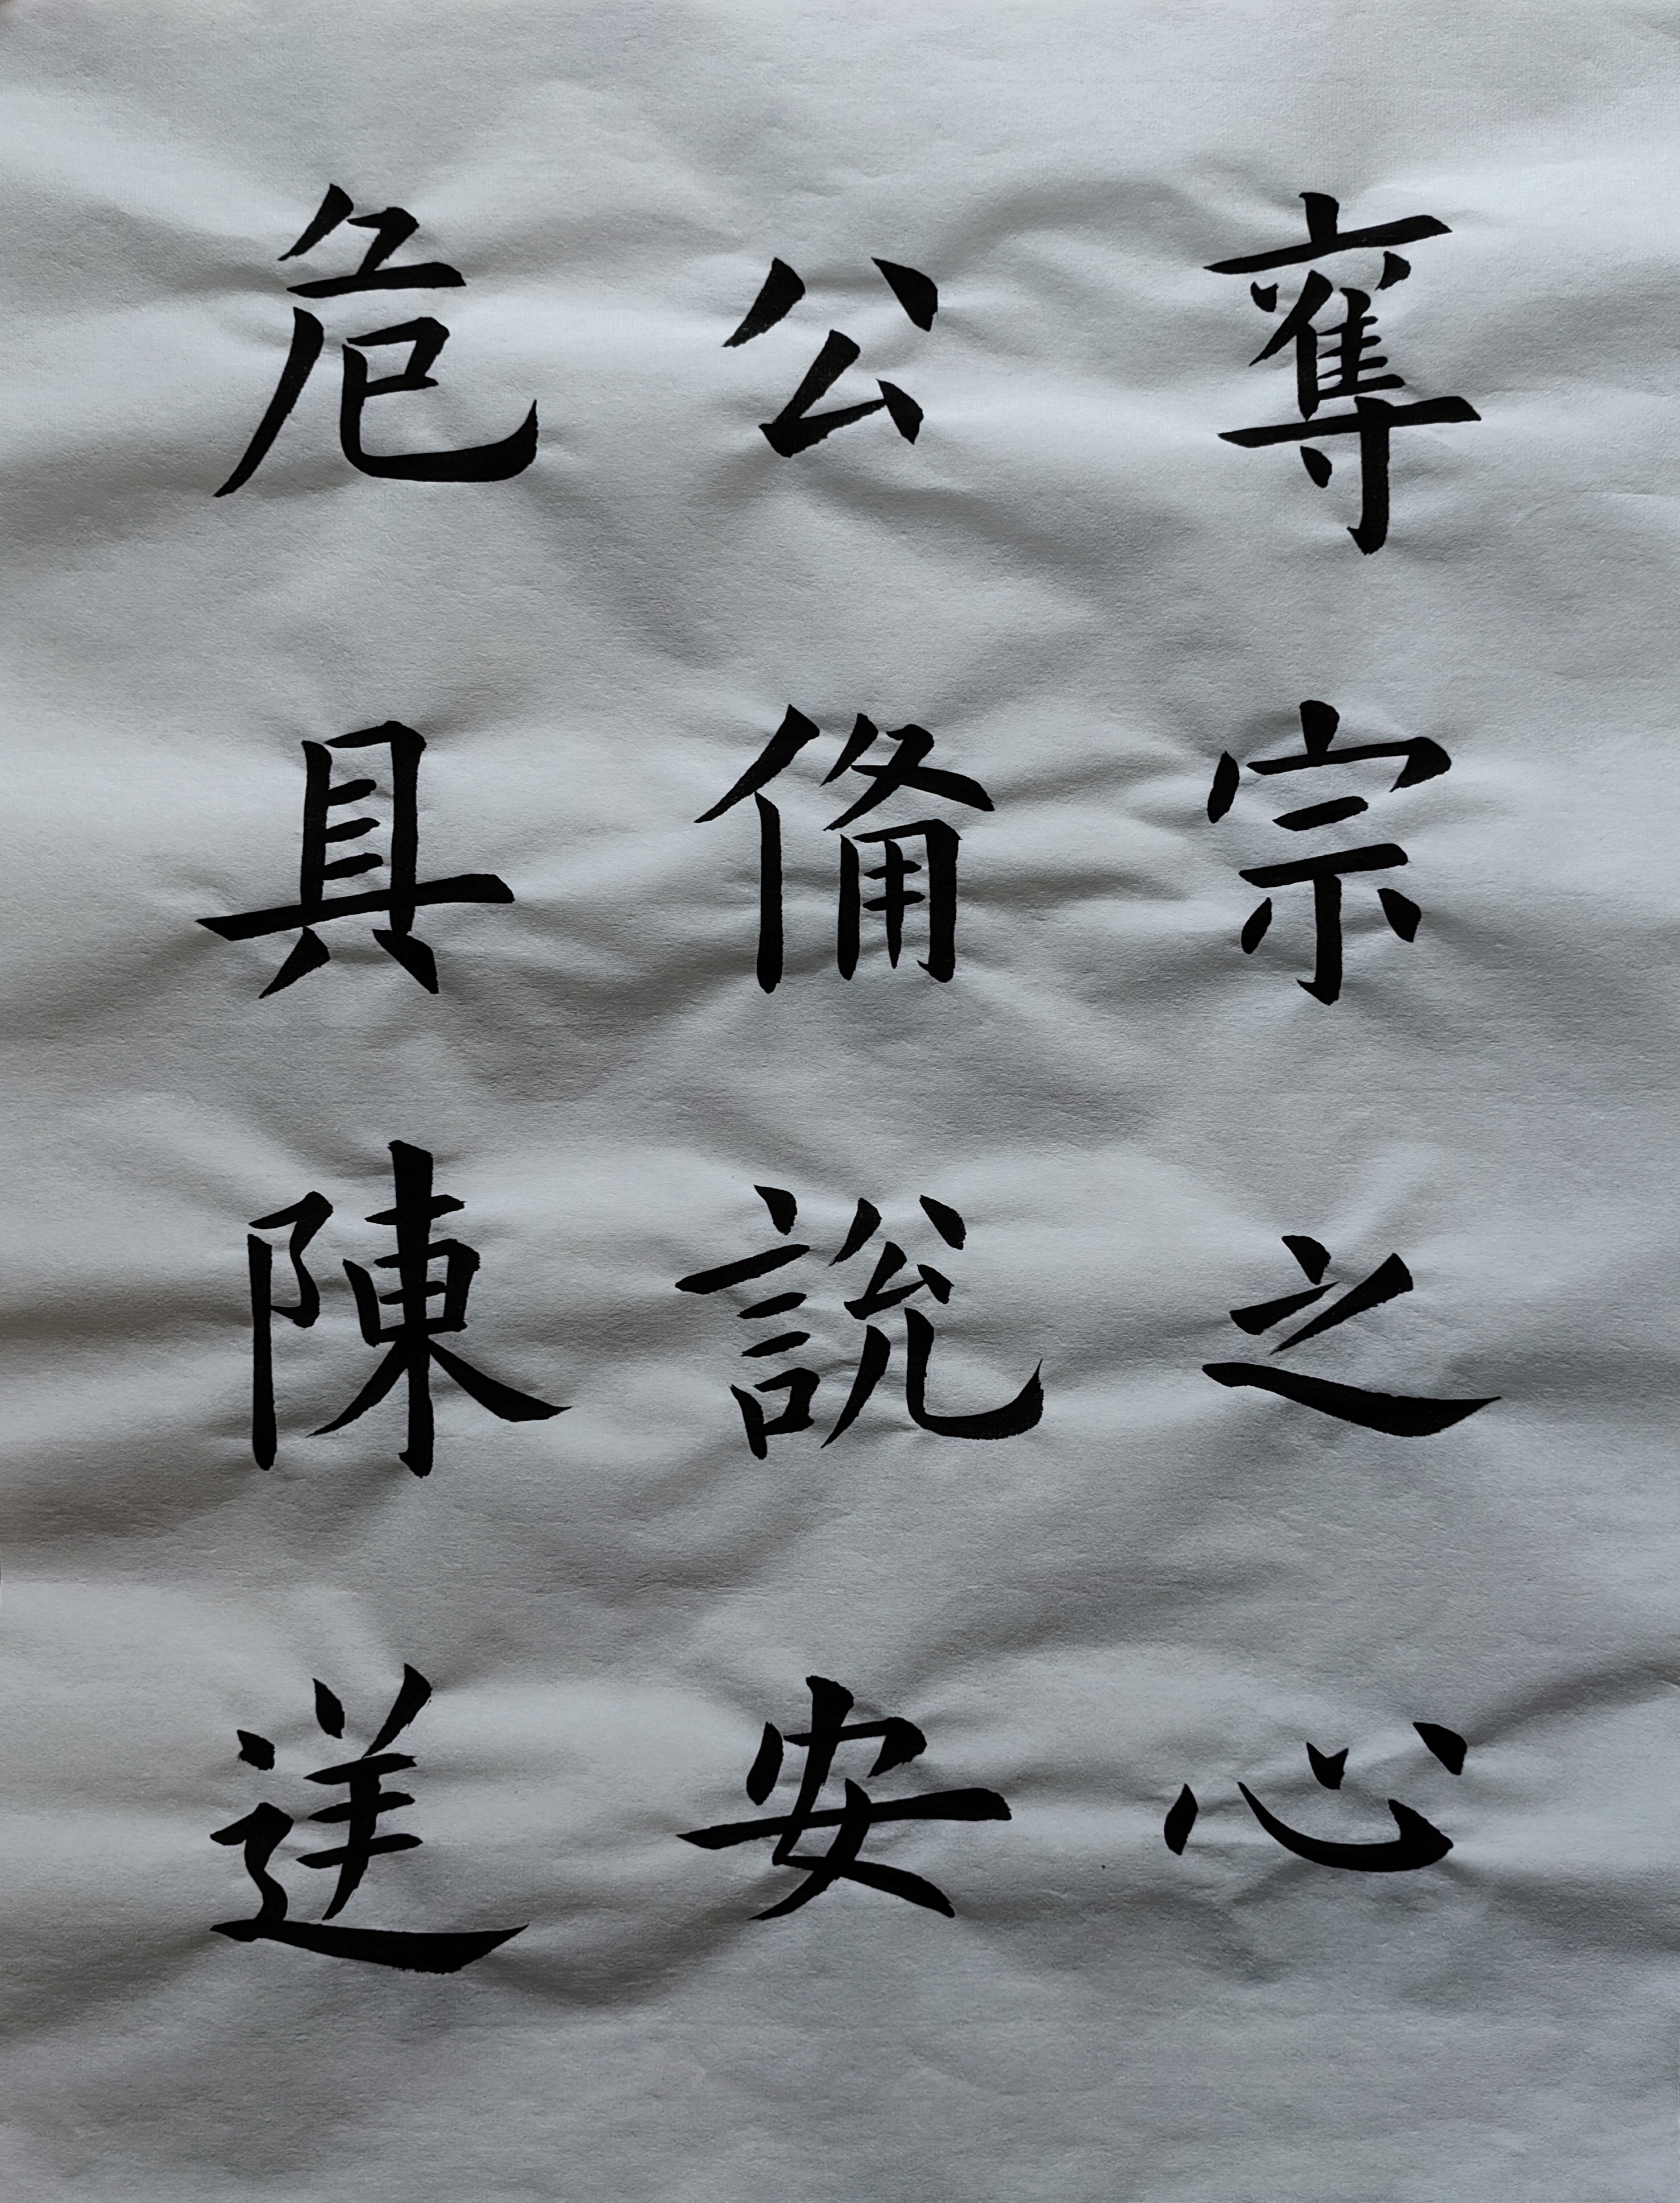 奪宗之心
公俻說安
危具陳送